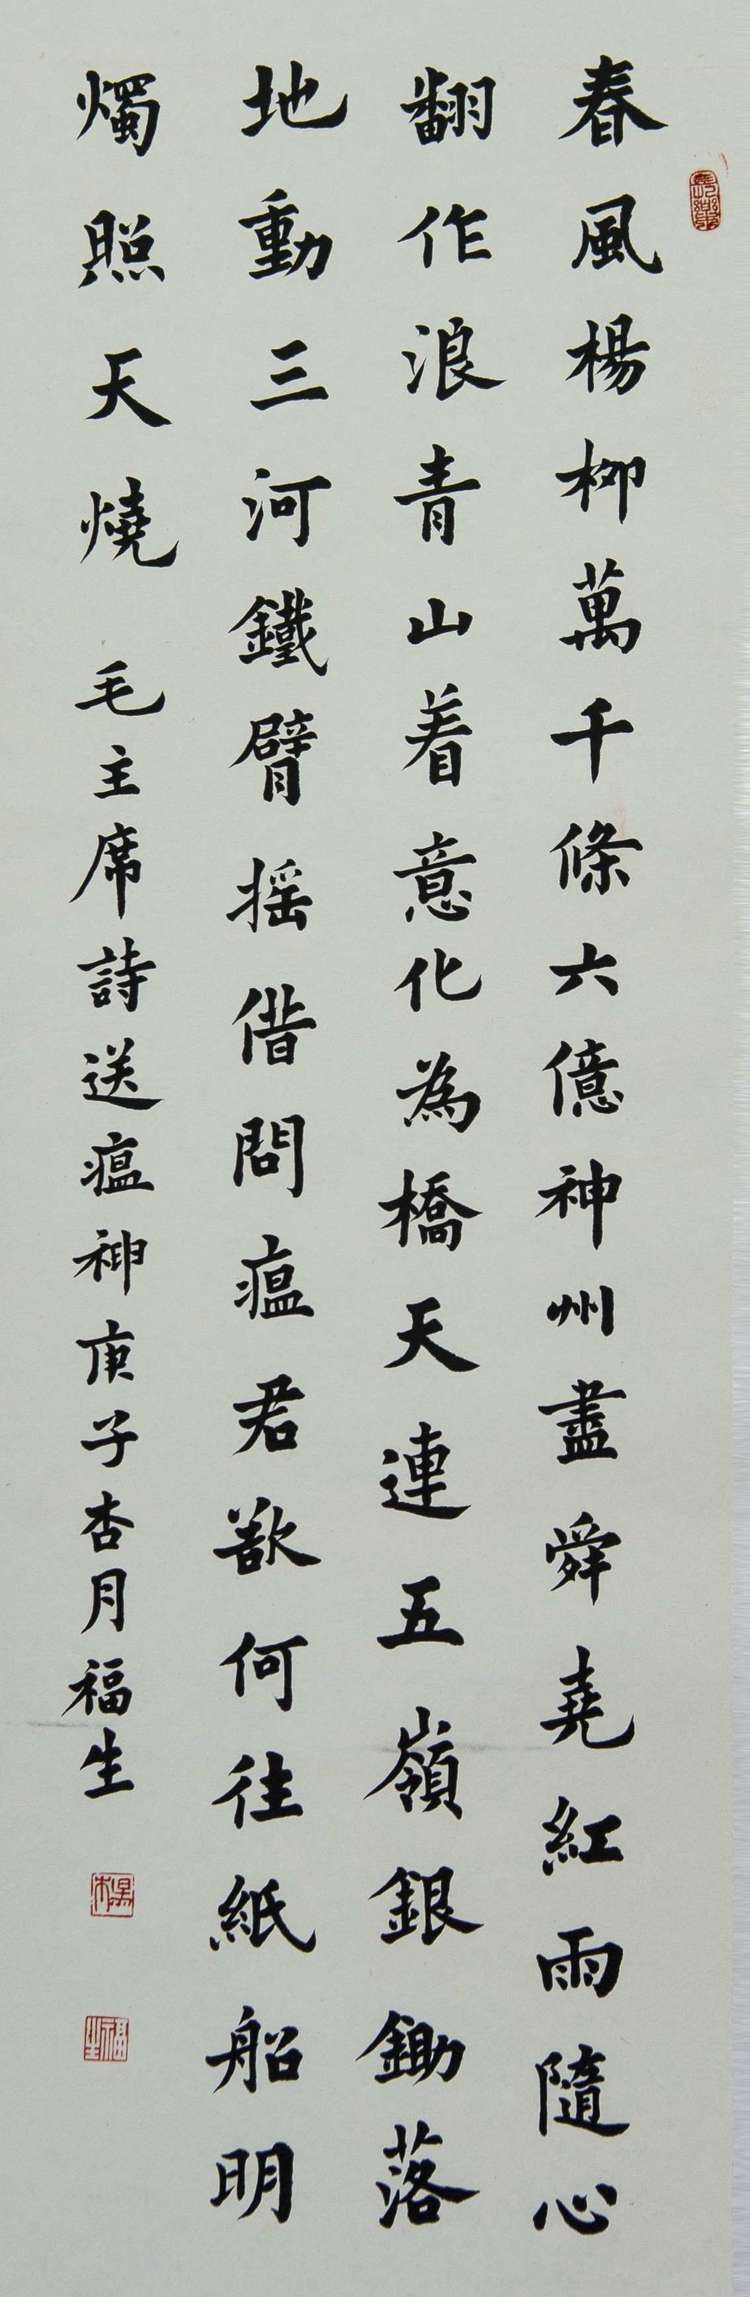 春風楊柳萬千條六億神州盡舜堯紅雨隨心
翻作浪青山着意化為橋天連五嶺銀鋤落
地動三河鐵臂摇借問瘟君欲何往紙船明
燭照天燒 毛主席詩送瘟神庚子杏月福生
福生